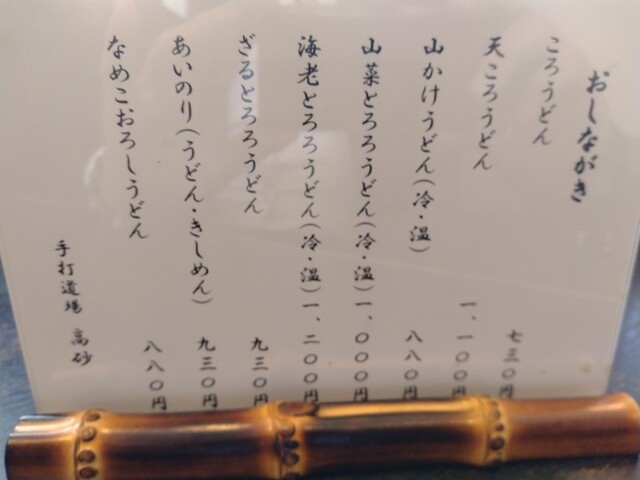 おしながき
ころうどん 七三〇円
天ころうどん 一、一〇〇円
山かけうどん(冷・温) 八八〇円
山菜とろろうどん(冷・温) 一、〇〇〇円
海老とろろうどん(冷・温) 一、二〇〇円
ざるとろろうどん 九三〇円
あいのり(うどん・きしめん) 九三〇円
なめこおろしうどん 八八〇円
手打道場 高砂